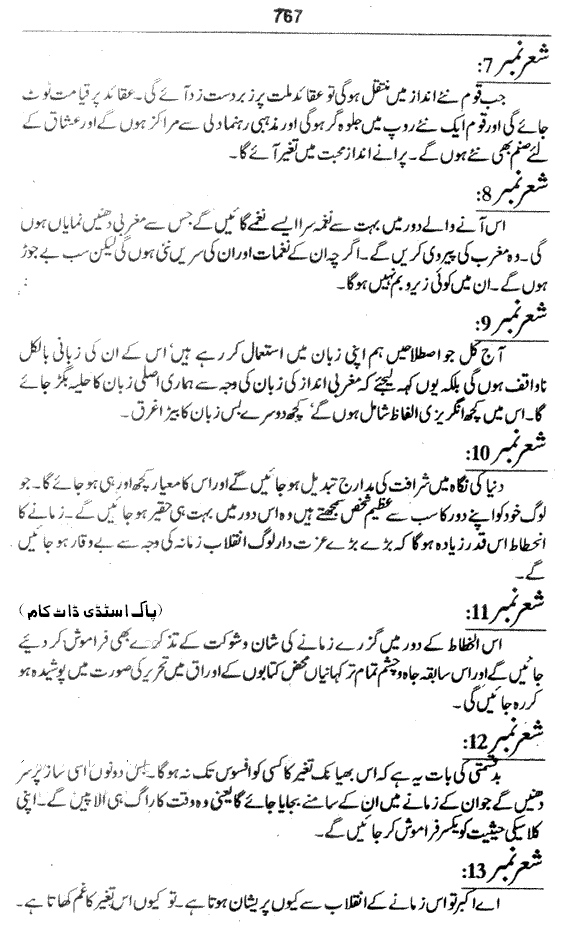 767
شعر نمبر 7:
جب قوم نئے انداز میں منتقل ہوگی تو عقائد ملت پر زبردست زد آئے گی۔ عقائد پر قیامت ٹوٹ
جائے گی اور قوم ایک نئے روپ میں جلوہ گر ہوگی اور مذہبی رہنما دلی سے مراکز ہوں گے اور عشاق کے
لئے صنم بھی نئے ہوں گے۔ پرانے انداز محبت میں تغیر آئے گا۔
شعر نمبر 8:
اس آنے والے دور میں بہت سے نغمہ سرا ایسے نغمے گائیں گے جس سے مغربی دھنیں نمایاں ہوں
گی۔ وہ مغرب کی پیروی کریں گے۔ اگرچہ ان کے نغمات اور ان کی سریں نئی ہوں گی لیکن سب بے جوڑ
ہوں گے۔ ان میں کوئی زیر و بم نہیں ہوگا۔
شعر نمبر 9:
آج کل جو اصطلاحیں ہم اپنی زبان میں استعمال کر رہے ہیں' اس کے ان کی زبانی بالکل
ناواقف ہوں گی بلکہ یوں کہہ لیجئے کہ مغربی انداز کی زبان کی وجہ سے ہماری اصلی زبان کا حلیہ بگڑ جائے
گا۔ اس میں کچھ انگریزی الفاظ شامل ہوں گے' کچھ دوسرے بس زبان کا بیڑا غرق۔
شعر نمبر 10:
دنیا کی نگاہ میں شرافت کی مدارج تبدیل ہو جائیں گے اور اس کا معیار کچھ اور ہی ہو جائے گا۔ جو
لوگ خود کو اپنے دور کا سب سے عظیم شخص سمجھتے ہیں وہ اس دور میں بہت ہی حقیر ہو جائیں گے۔ زمانے کا
انحطاط اس قدر زیادہ ہوگا کہ بڑے بڑے عزت دار لوگ انقلاب زمانہ کی وجہ سے بے وقار ہو جائیں
گے۔
شعر نمبر 11:
(پاک اسٹڈی ڈاٹ کام)
اس انحطاط کے دور میں گزرے زمانے کی شان و شوکت کے تذکرے بھی فراموش کر دیئے
جائیں گے اور اس سابقہ جاہ و چشم تمام تر کہانیاں محض کتابوں کے اوراق میں تحریر کی صورت میں پوشیدہ ہو
کر رہ جائیں گی۔
شعر نمبر 12:
بدقسمتی کی بات یہ ہے کہ اس بھیانک تغیر کا کسی کو افسوس تک نہ ہوگا۔ بس دونوں اسی ساز پر سر
دھنیں گے جو ان کے زمانے میں ان کے سامنے بجایا جائے گا یعنی وہ وقت کا راگ ہی الاپیں گے۔ اپنی
کلاسیکی حیثیت کو یکسر فراموش کر جائیں گے۔
شعر نمبر 13:
اے اکبر تو اس زمانے کے انقلاب سے کیوں پریشان ہوتا ہے۔ تو کیوں اس تغیر کا غم کھاتا ہے۔